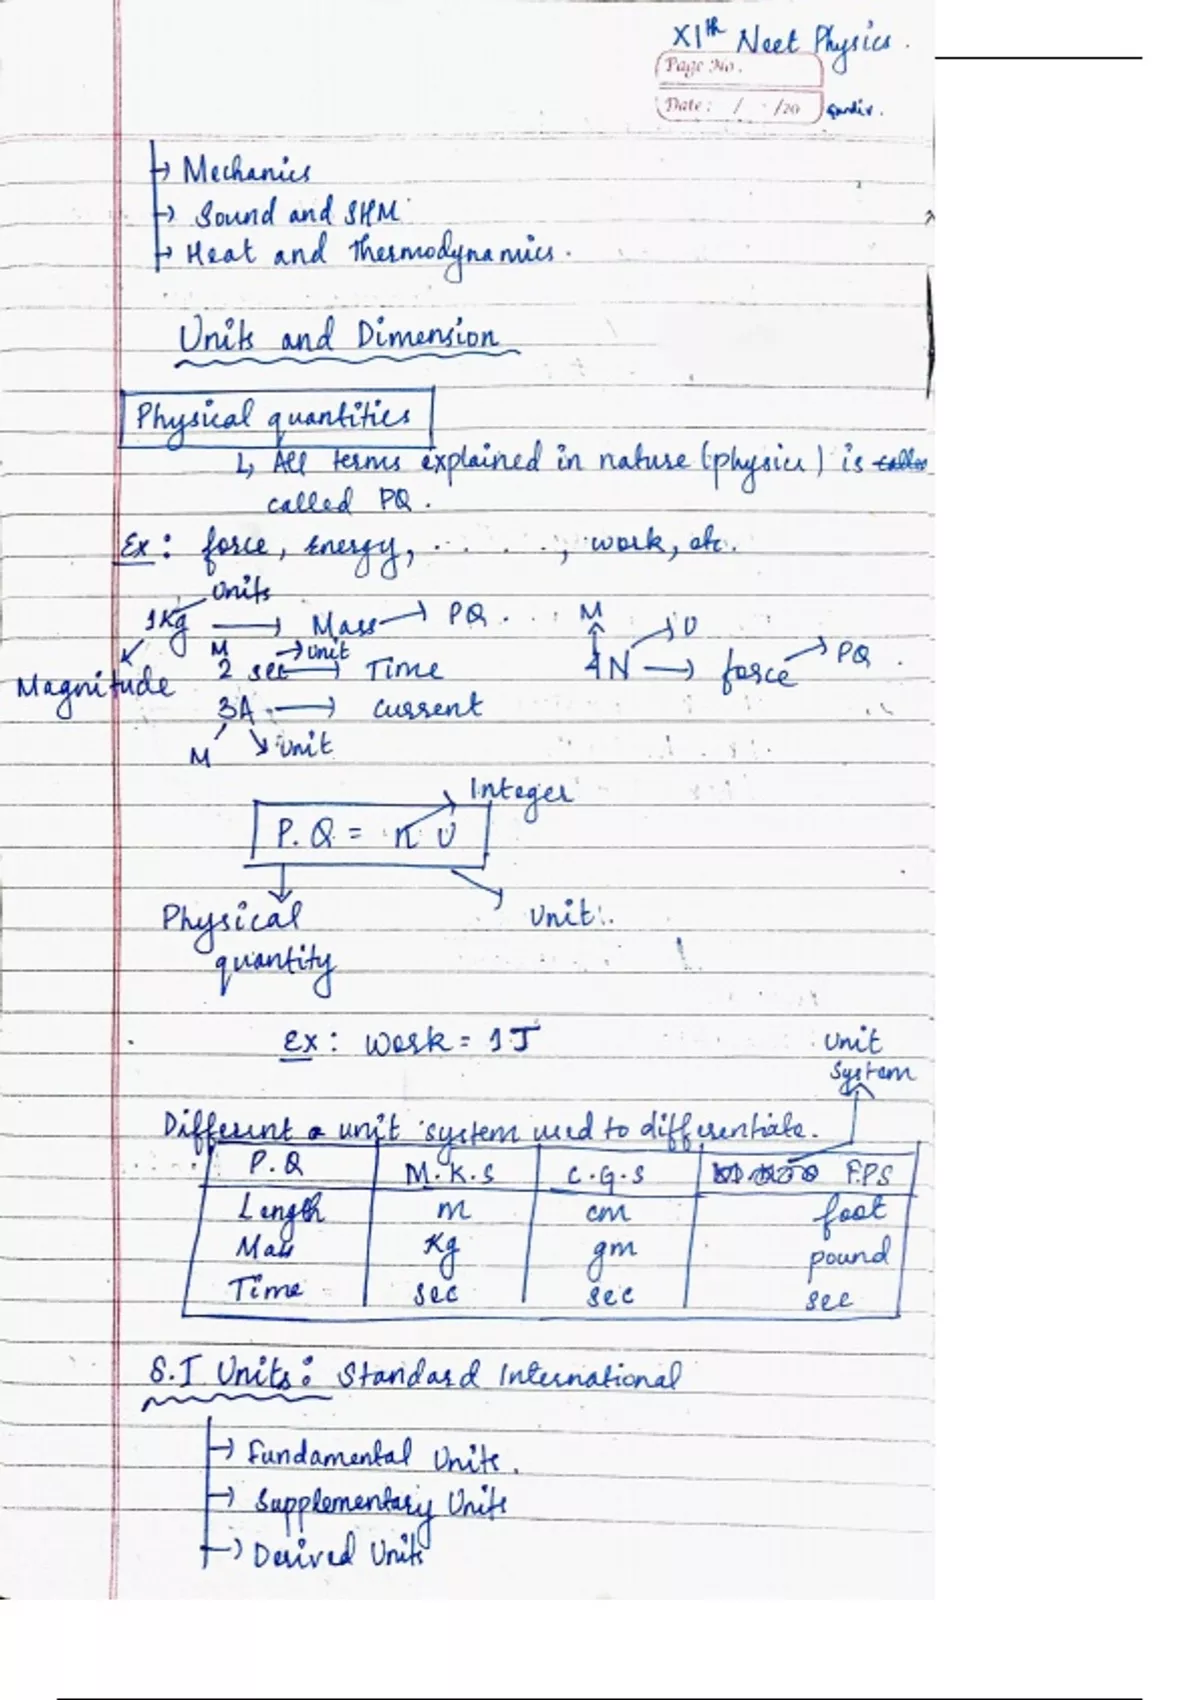 XIth Neet Physics.
Page No.
Date: / /20
→ Mechanics
→ Sound and SHM
→ Heat and Thermodynamics.
Units and Dimension
Physical quantities
↳ All terms explained in nature (physics) is
called PQ.
Ex: force, Energy, . . . . ., work, etc.
Units
1Kg → Mass → PQ.
Magnitude
M → Unit
2 sec → Time
3A → current
M Unit
M U
4N → force → PQ.
Integer
P.Q = n U
Physical quantity
Unit.
Ex: Work = 1J
Unit
System
Different unit system used to differentiate.
P.Q M.K.S C.G.S F.P.S
Length m cm foot
Mass Kg gm pound
Time sec sec sec
S.I Units: Standard International
→ Fundamental Units.
→ Supplementary Units
→ Derived Units